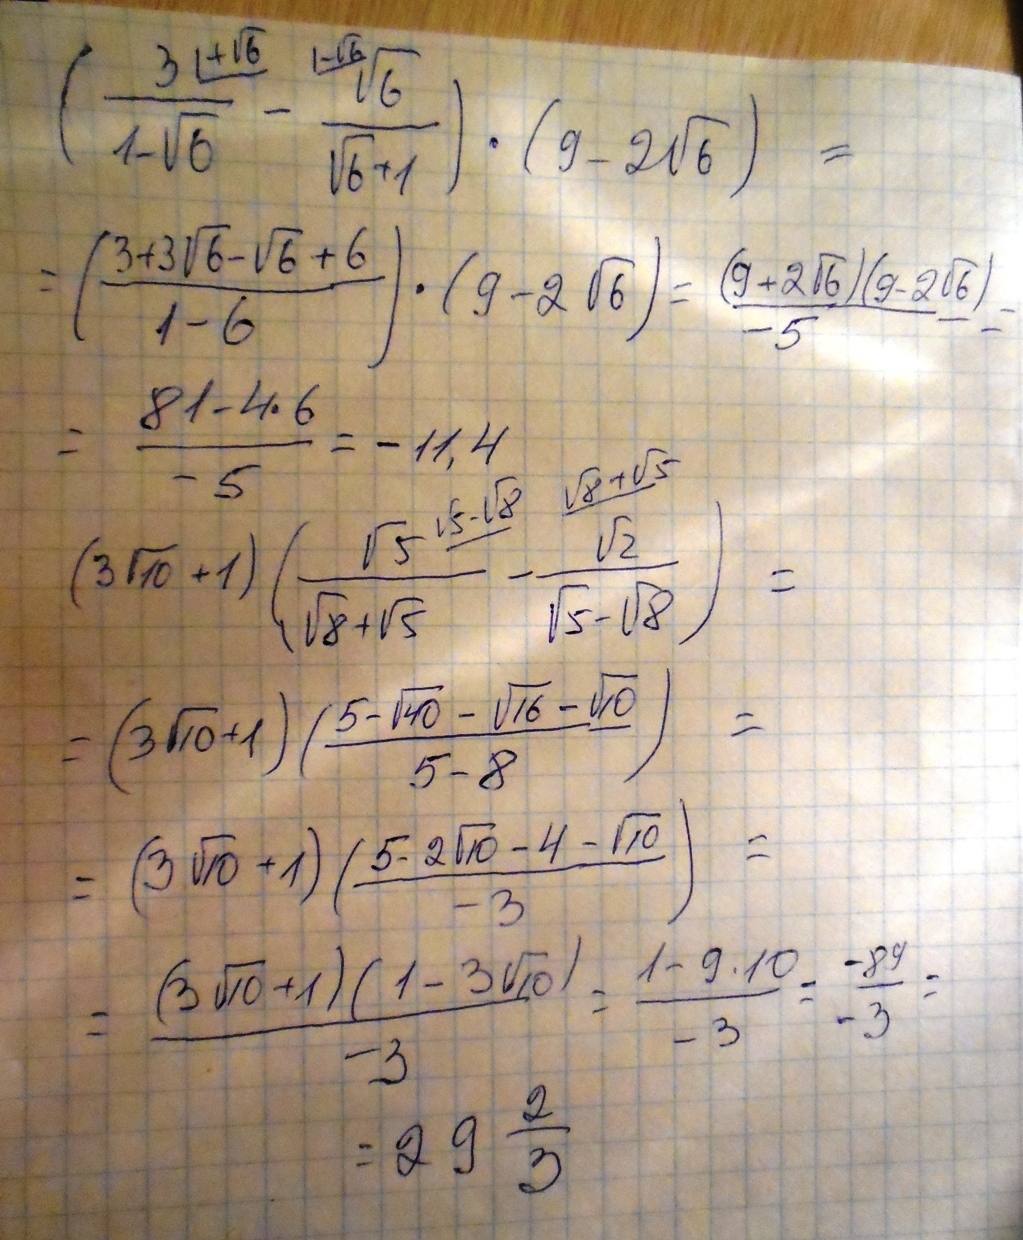 (3/(1-√6) |1+√6 - |1-√6 √6/(√6+1)) · (9-2√6) =
= ((3+3√6-√6+6)/(1-6)) · (9-2√6) = (9+2√6)(9-2√6)/(-5) =
= (81-4·6)/(-5) = -11,4
(3√10+1)(√5/(√8+√5) √5-√8 - √2/(√5-√8) √8+√5) =
= (3√10+1)((5-√40-√16-√10)/(5-8)) =
= (3√10+1)((5-2√10-4-√10)/(-3)) =
= (3√10+1)(1-3√10)/(-3) = (1-9·10)/(-3) = -89/-3 =
= 29 2/3